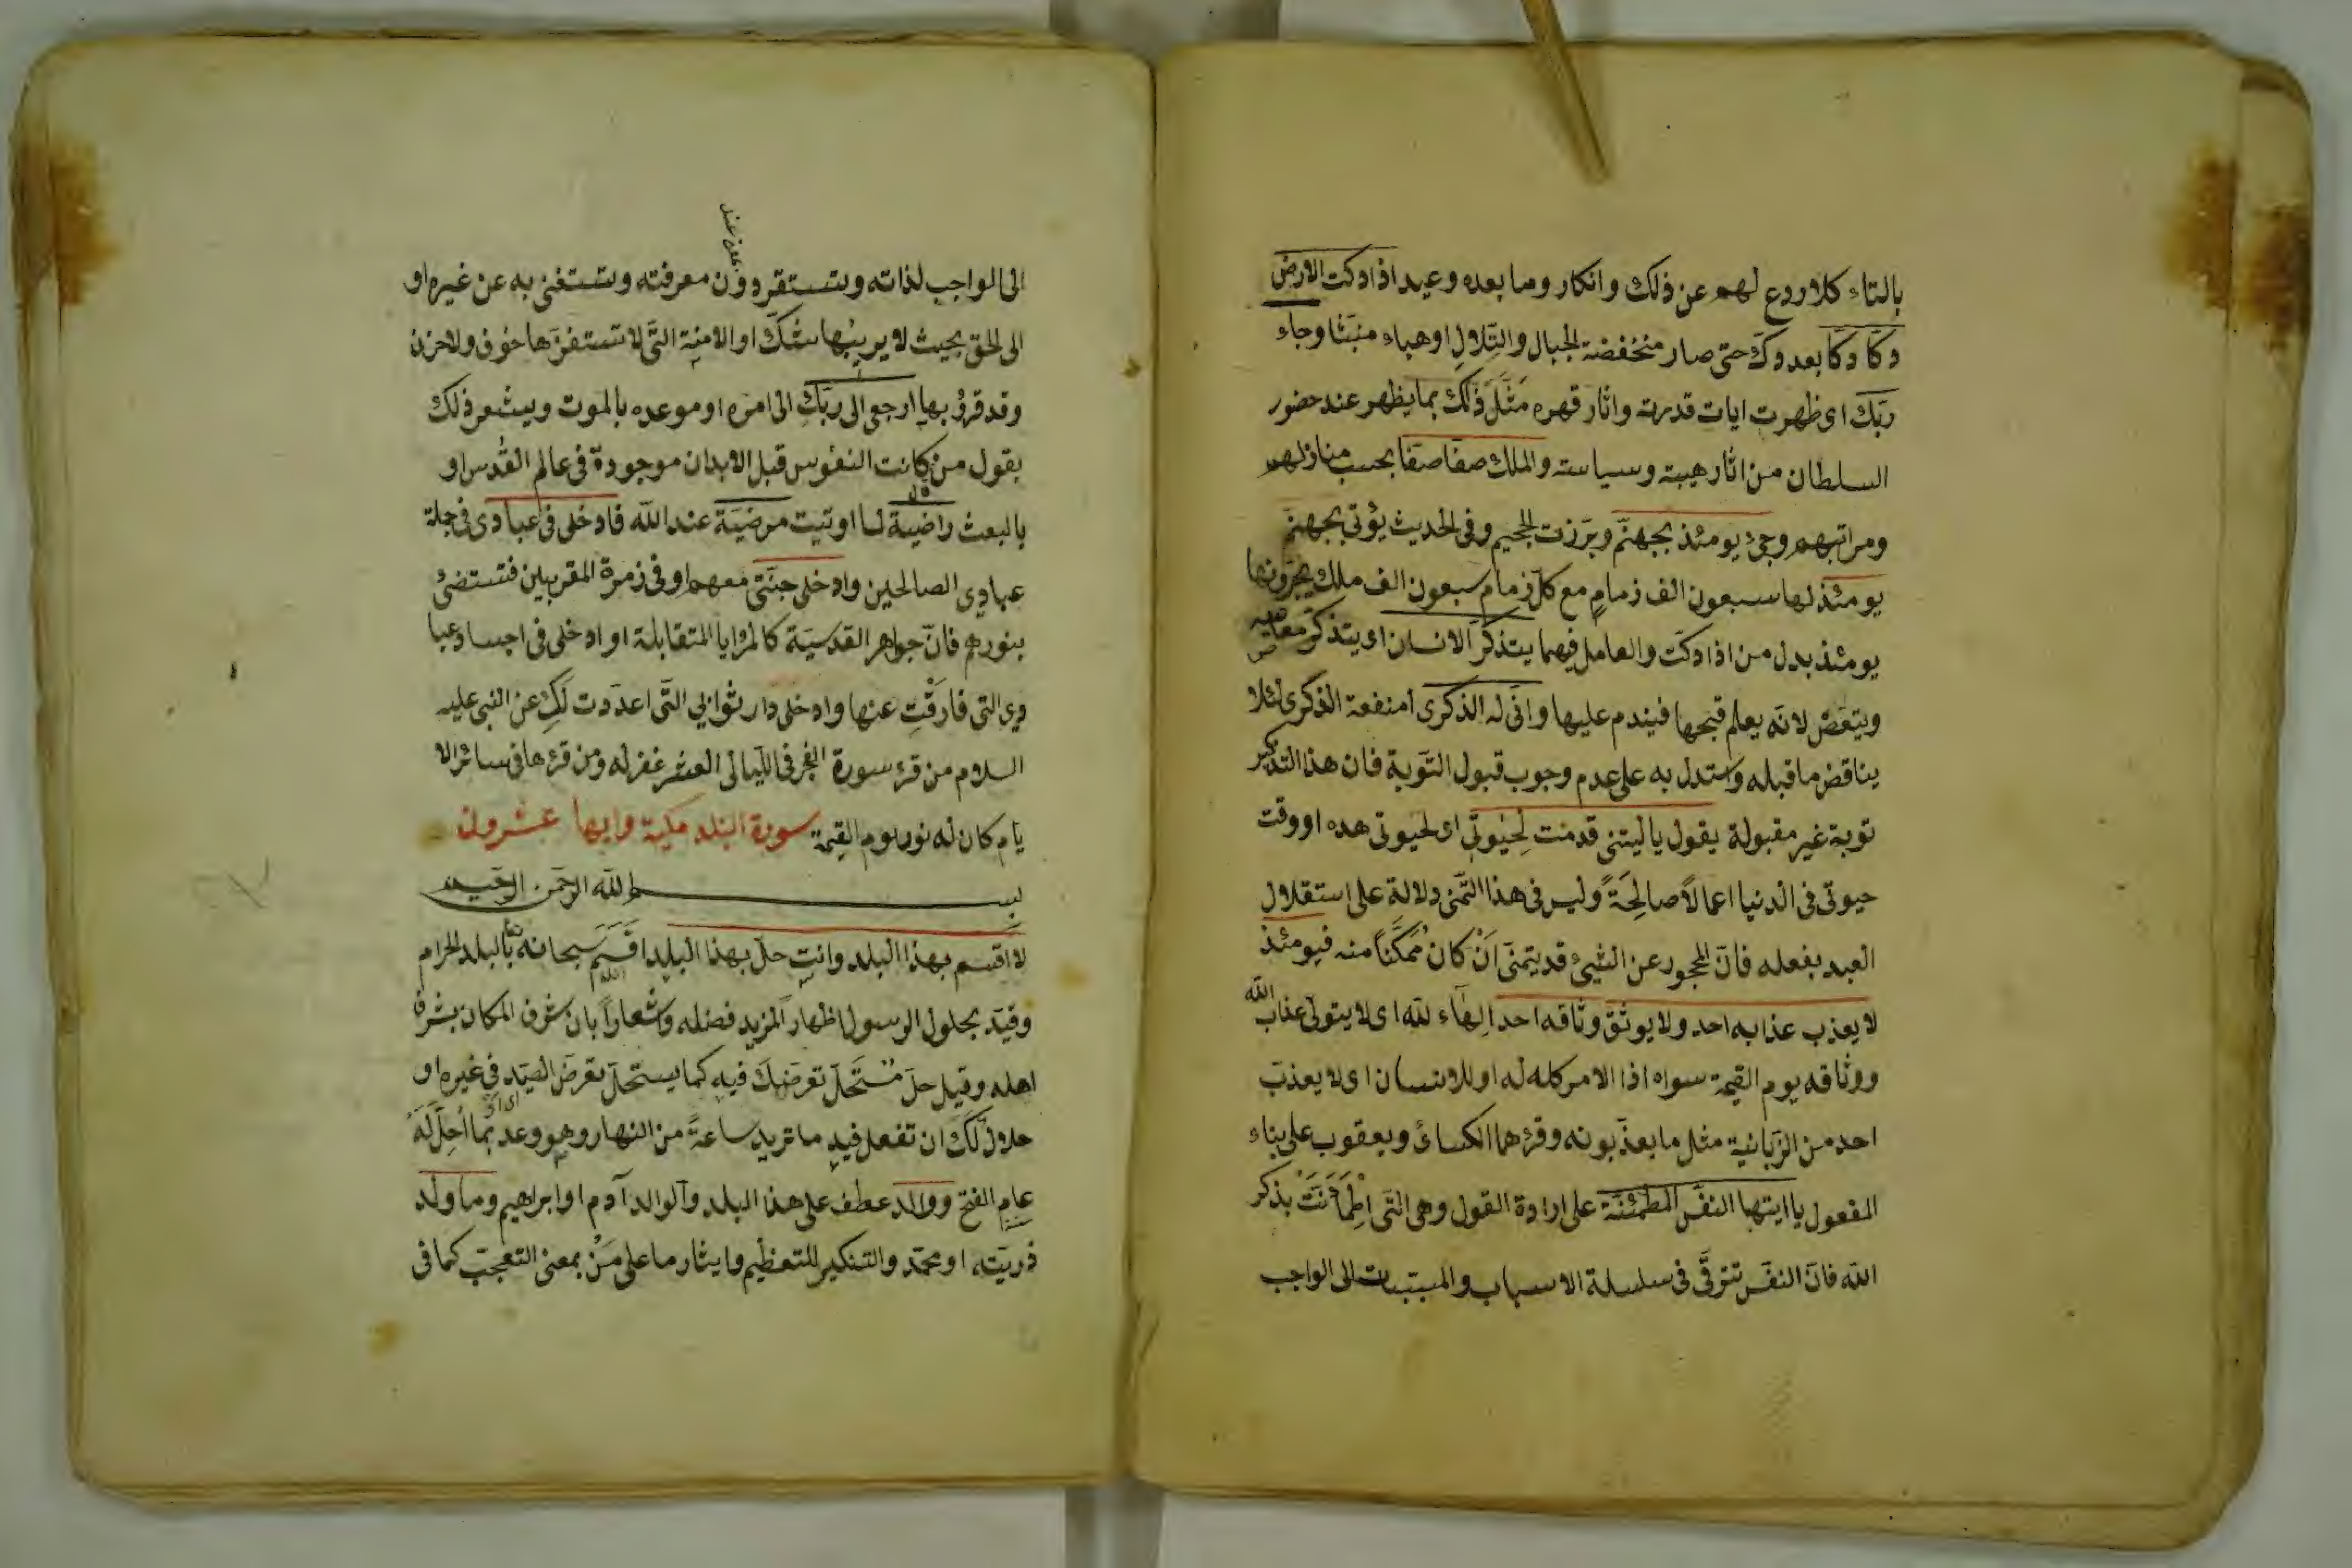 بالتاء كلا ردع لهم عن ذلك وانكار وما بعده وعيد اذا دكت الارض
دكّا دكّا بعد دك حتى صار منخفضة الجبال والتلال او هباء منبثا وجاء
ربّك اى ظهرت ايات قدرته واثار قهره مَثَّلَ ذلك بما يظهر عند حضور
السلطان من اثار هيبته وسياسته والملك صفا صفا بحسب منازلهم
ومراتبهم وجئ يومئذ بجهنّم وبرّزت الجحيم وفى الحديث يؤتى بجهنّم
يومئذ لها سبعون الف زمام مع كل زمام سبعون الف ملك يجرّونها
يومئذ بدل من اذا دكت والعامل فيهما يتذكّر الانسان اى يتذكر معاصيه
ويتعض لانه يعلم قبحها فيندم عليها وانّى له الذكرى امنفعة الذكرى لئلا
يناقض ما قبله واستدل به على عدم وجوب قبول التوبة فان هذا التذكير
توبة غير مقبولة يقول يا ليتنى قدمت لِحَيٰوتى اى لحيوتى هده او وقت
حيوتى فى الدنيا اعمالاً صالِحَةً وليس فى هذا التمنى دلالة على استقلال
العبد بفعله فانّ المحجور عن الشيئ قد يتمنّى اَنْ كان مُمَكَّناً منه فيومئذ
لا يعذب عذابه احد ولا يوثق وثاقه احد الهاء لله اى لا يتولى عذاب الله
ووثاقه يوم القيمة سواه اذا الامر كله له او للانسان اى لا يعذب
احد من الزبانية مثل ما يعذّبونه وقرءهما الكسائ ويعقوب على بناء
المفعول يا ايتها النفس المطمئنّة على ارادة القول وهى التى اطْمَأَنَّتْ بذكر
الله فانّ النفس تترقّى فى سلسلة الاسباب والمسببات الى الواجب
الى الواجب لذاته وتستقر دون معرفته وتستغنى به عن غيره او
الى الحق بحيث لا يريبُها شكّ او الامنة التى لا تستفزّها خوف ولا حزن
وقد قرؤ بها ارجعى الى ربّكِ الى امره او موعده بالموت ويشعر ذلك
بقول من قال كانت النفوس قبل الابدان موجودة فى عالم القُدس او
بالبعث راضيةً لما اوتيت مرضيّة عند الله فادخلى فى عبادى فى جملة
عبادى الصالحين وادخلى جنّتى معهم او فى زمرة المقربين فتستضئ
بنورهم فانّ جواهر القدسيّة كالمرايا المتقابلة او ادخلى فى اجساد عبا
دى التى فارقْتِ عنها وادخلى دار ثوابى التى اعددت لكِ عن النبى عليه
السلام من قرء سورة الفجر فى الليالى العشر غفر له ومن قرءها فى سائر الا
يام كان له نور يوم القيمة سورة البلد مكية وايها عشرون
بسم الله الرحمن الرحيم
لا اقسم بهذا البلد وانت حلّ بهذا البلد اقسم سبحانه بالبلد الحرام
وقيّد بحلول الرسول اظهاراً لمزيد فضله واشعاراً بان شرف المكان بشرف
اهله وقيل حلّ مُستَحلّ تعرضك فيه كما يستحلّ تعرض الصيد فى غيره او
حلال لكَ ان تفعل فيه ما تريد ساعةً من النهار وهو وعد بما اُحِلَّ لَهُ
عام الفتح ووالد عطف على هذا البلد والوالد آدم او ابراهيم وما ولد
ذريّته او محمّد والتنكير للتعظيم وايثار ما على مَنْ بمعنى التعجب كما فى